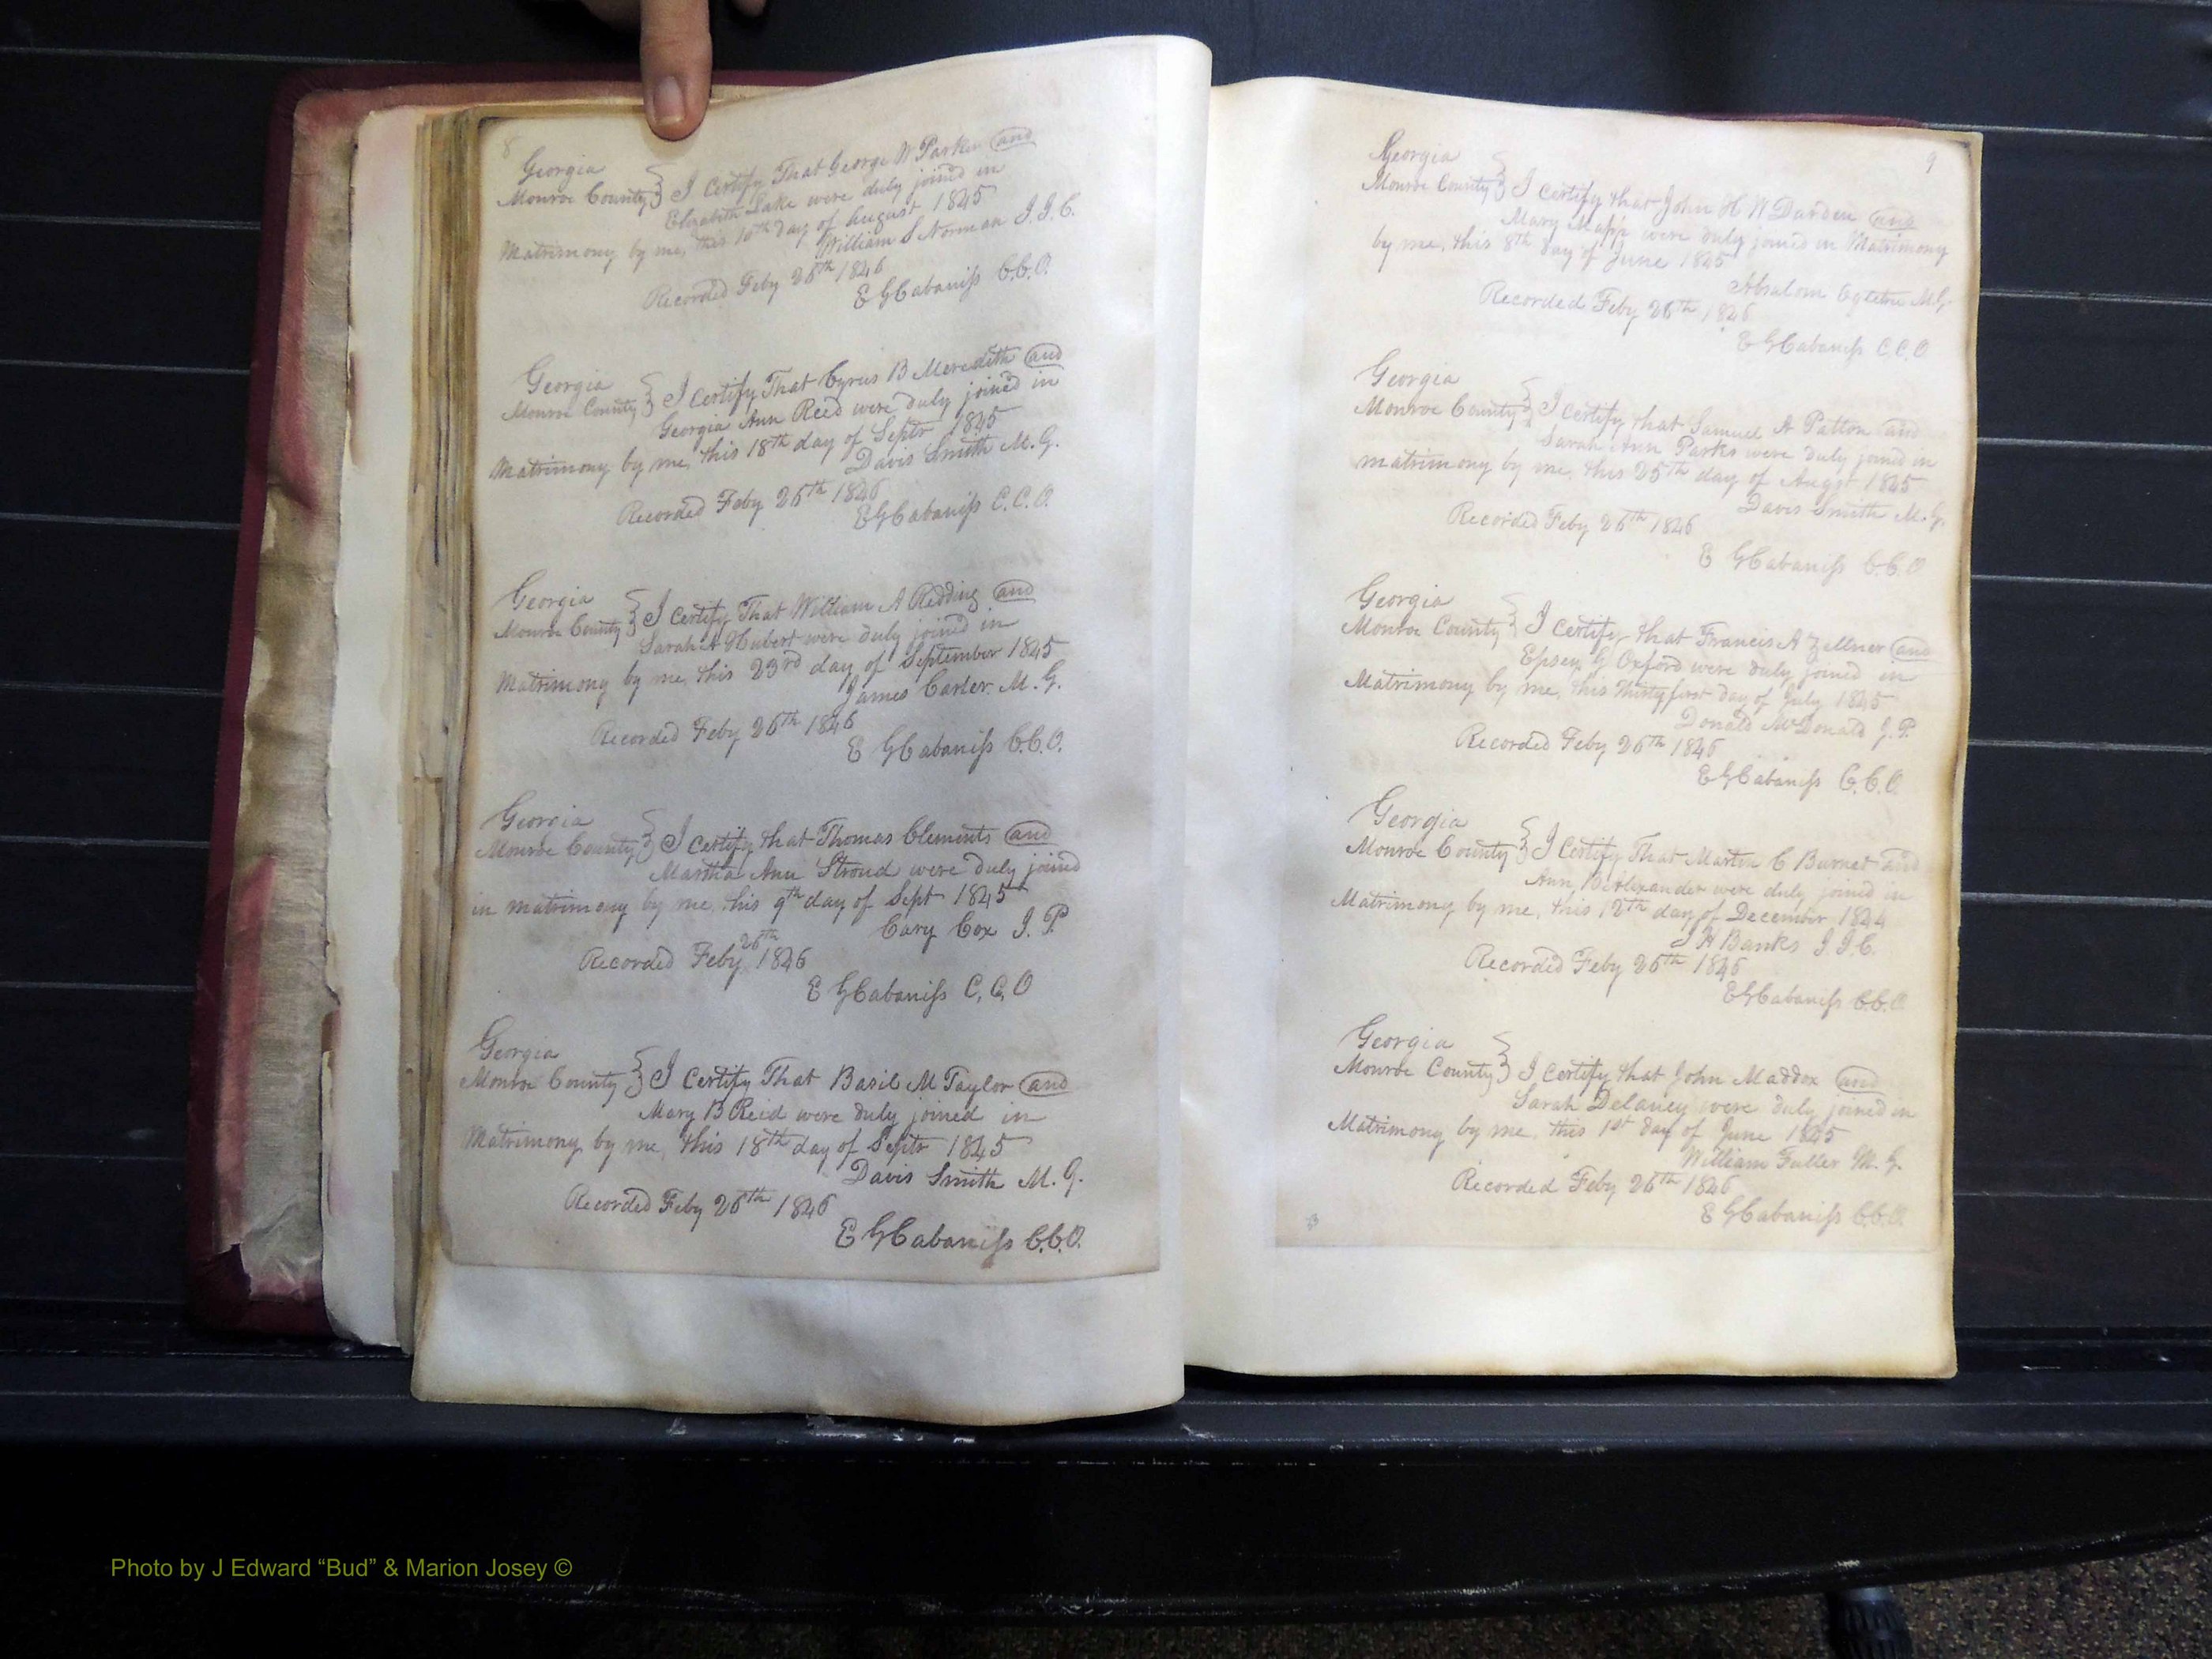 8
Georgia
Monroe County } I Certify That George W Parker and
Elizabeth Lake were duly joined in
Matrimony by me, this 10th day of August 1845
William S Norman J.I.C.
Recorded Feby 26th 1846
E G Cabaniss C.C.O.
Georgia
Monroe County } I Certify That Cyrus B Meredith and
Georgia Ann Reid were duly joined in
Matrimony by me, this 18th day of Septr 1845
Davis Smith M.G.
Recorded Feby 26th 1846
E G Cabaniss C.C.O.
Georgia
Monroe County } I Certify That William A Redding and
Sarah A Hubert were duly joined in
Matrimony by me, this 23rd day of September 1845
James Carter M.G.
Recorded Feby 26th 1846
E G Cabaniss C.C.O.
Georgia
Monroe County } I Certify that Thomas Clements and
Martha Ann Stroud were duly joined
in matrimony by me, this 9th day of Sept 1845
Cary Cox J.P.
Recorded Feby 26th 1846
E G Cabaniss C.C.O
Georgia
Monroe County } I Certify That Basil M Taylor and
Mary B Reid were duly joined in
Matrimony by me, this 18th day of Septr 1845
Davis Smith M.G.
Recorded Feby 26th 1846
E G Cabaniss C.C.O.
9
Georgia
Monroe County } I Certify that John H W Darden and
Mary Mapp were duly joined in Matrimony
by me, this 8th day of June 1845
Absalom Ogletree M.G.
Recorded Feby 26th 1846
E G Cabaniss C.C.O
Georgia
Monroe County } I Certify that Samuel A Patton and
Sarah Ann Parks were duly joined in
matrimony by me, this 25th day of Augst 1845
Davis Smith M.G.
Recorded Feby 26th 1846
E G Cabaniss C.C.O
Georgia
Monroe County } I Certify that Francis A Zellner and
Epsey G Oxford were duly joined in
Matrimony by me, this Thirtyfirst day of July 1845
Donald McDonald J.P.
Recorded Feby 26th 1846
E G Cabaniss C.C.O
Georgia
Monroe County } I Certify That Martin C Burnet and
Ann B Alexander were duly joined in
Matrimony by me, this 12th day of December 1844
J H Banks J.I.C.
Recorded Feby 26th 1846
E G Cabaniss C.C.O
Georgia
Monroe County } I Certify that John Maddox and
Sarah Delaney were duly joined in
Matrimony by me, this 1st day of June 1845
William Fuller M.G.
Recorded Feby 26th 1846
E G Cabaniss C.C.O.
Photo by J Edward “Bud” & Marion Josey ©